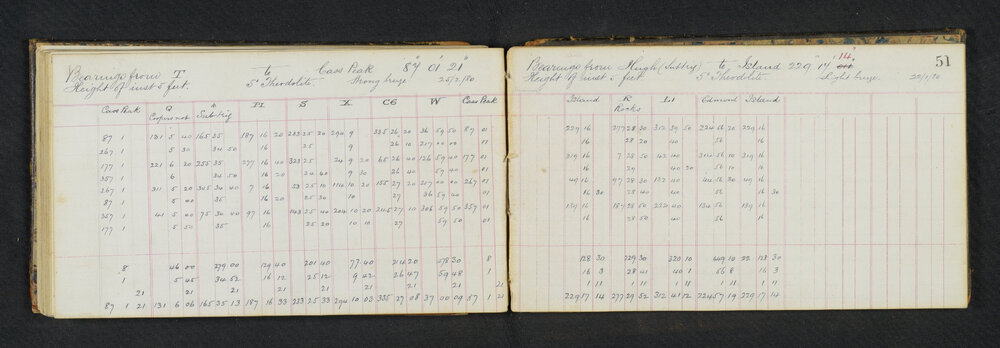 Bearings from T to Cass Peak 87° 01' 21"
Height of inst 5 feet. 5" Theodolite. Strong breeze 25/2/80
Cass Peak Q A PI S X C6 W Cass Peak
Subtrig
87 1 131 5 40 165 35 187 16 20 233 25 20 294 9 335 26 20 36 59 50 87 01
267 1 5 30 34 50 16 25 9 26 10 217 00 00 11
177 1 221 6 20 255 35 277 16 40 323 25 24 9 20 65 26 40 126 59 40 177 01
357 1 6 34 50 16 20 24 40 9 30 26 40 59 40 01
267 1 311 5 20 345 34 40 7 16 53 25 10 114 10 20 155 27 20 217 00 00 267 01
87 1 5 00 35 16 20 25 30 10 27 36 59 40 01
357 1 41 5 40 75 30 40 97 16 143 25 40 204 10 20 245 27 10 306 59 50 357 01
177 1 5 50 35 16 25 20 10 10 27 59 50 01
8 46 00 279 00 129 40 201 40 77 40 214 20 478 30 8
1 5 45 34 52 16 12 25 12 9 42 26 47 59 48 1
21 21 21 21 21 21 21 21
87 1 21 131 6 06 165 35 13 187 16 33 233 25 33 294 10 03 335 27 08 37 00 09 87 1 21
51
Bearings from High (Subtrg) to Island 229 17 14"
Height of inst 5 feet. 5" Theodolite. Light breeze 22/1/80
Island R LI Edmund Island
Rocks
229 16 277 28 30 312 39 50 224 56 20 229 16
16 28 20 40 56 16
319 16 7 28 50 42 40 314 56 10 319 16
16 29 40 20 56 10 16
49 16 97 28 30 132 40 44 56 30 49 16
16 30 28 40 40 56 16 30
139 16 187 28 50 222 40 134 56 139 16
16 28 50 40 56 16
128 30 229 30 320 10 449 10 128 30
16 3 28 41 40 1 56 8 16 3
1 11 1 11 1 11 1 11 1 11
229 17 14 277 29 52 312 41 12 224 57 19 229 17 14